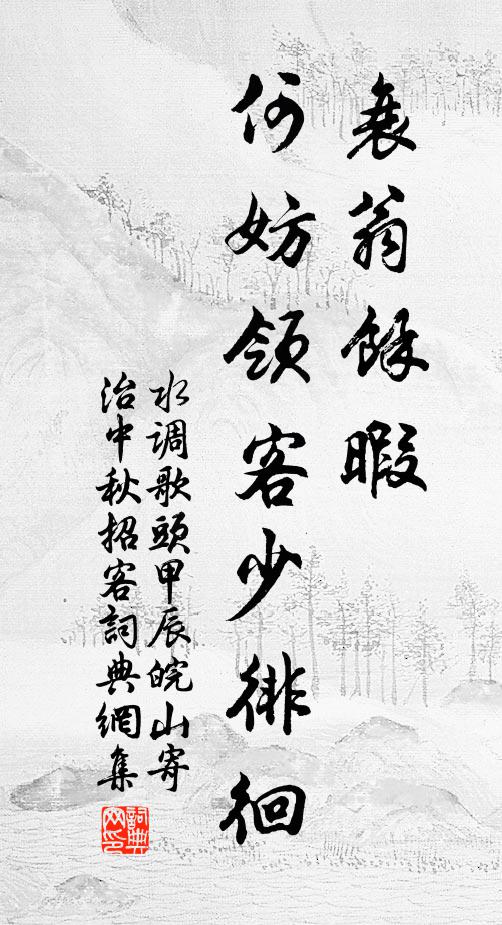 衰翁餘暇
何妨領客少徘徊
水调歌頭甲辰皖山寄
治中秋招客詞典網集
詞典网印